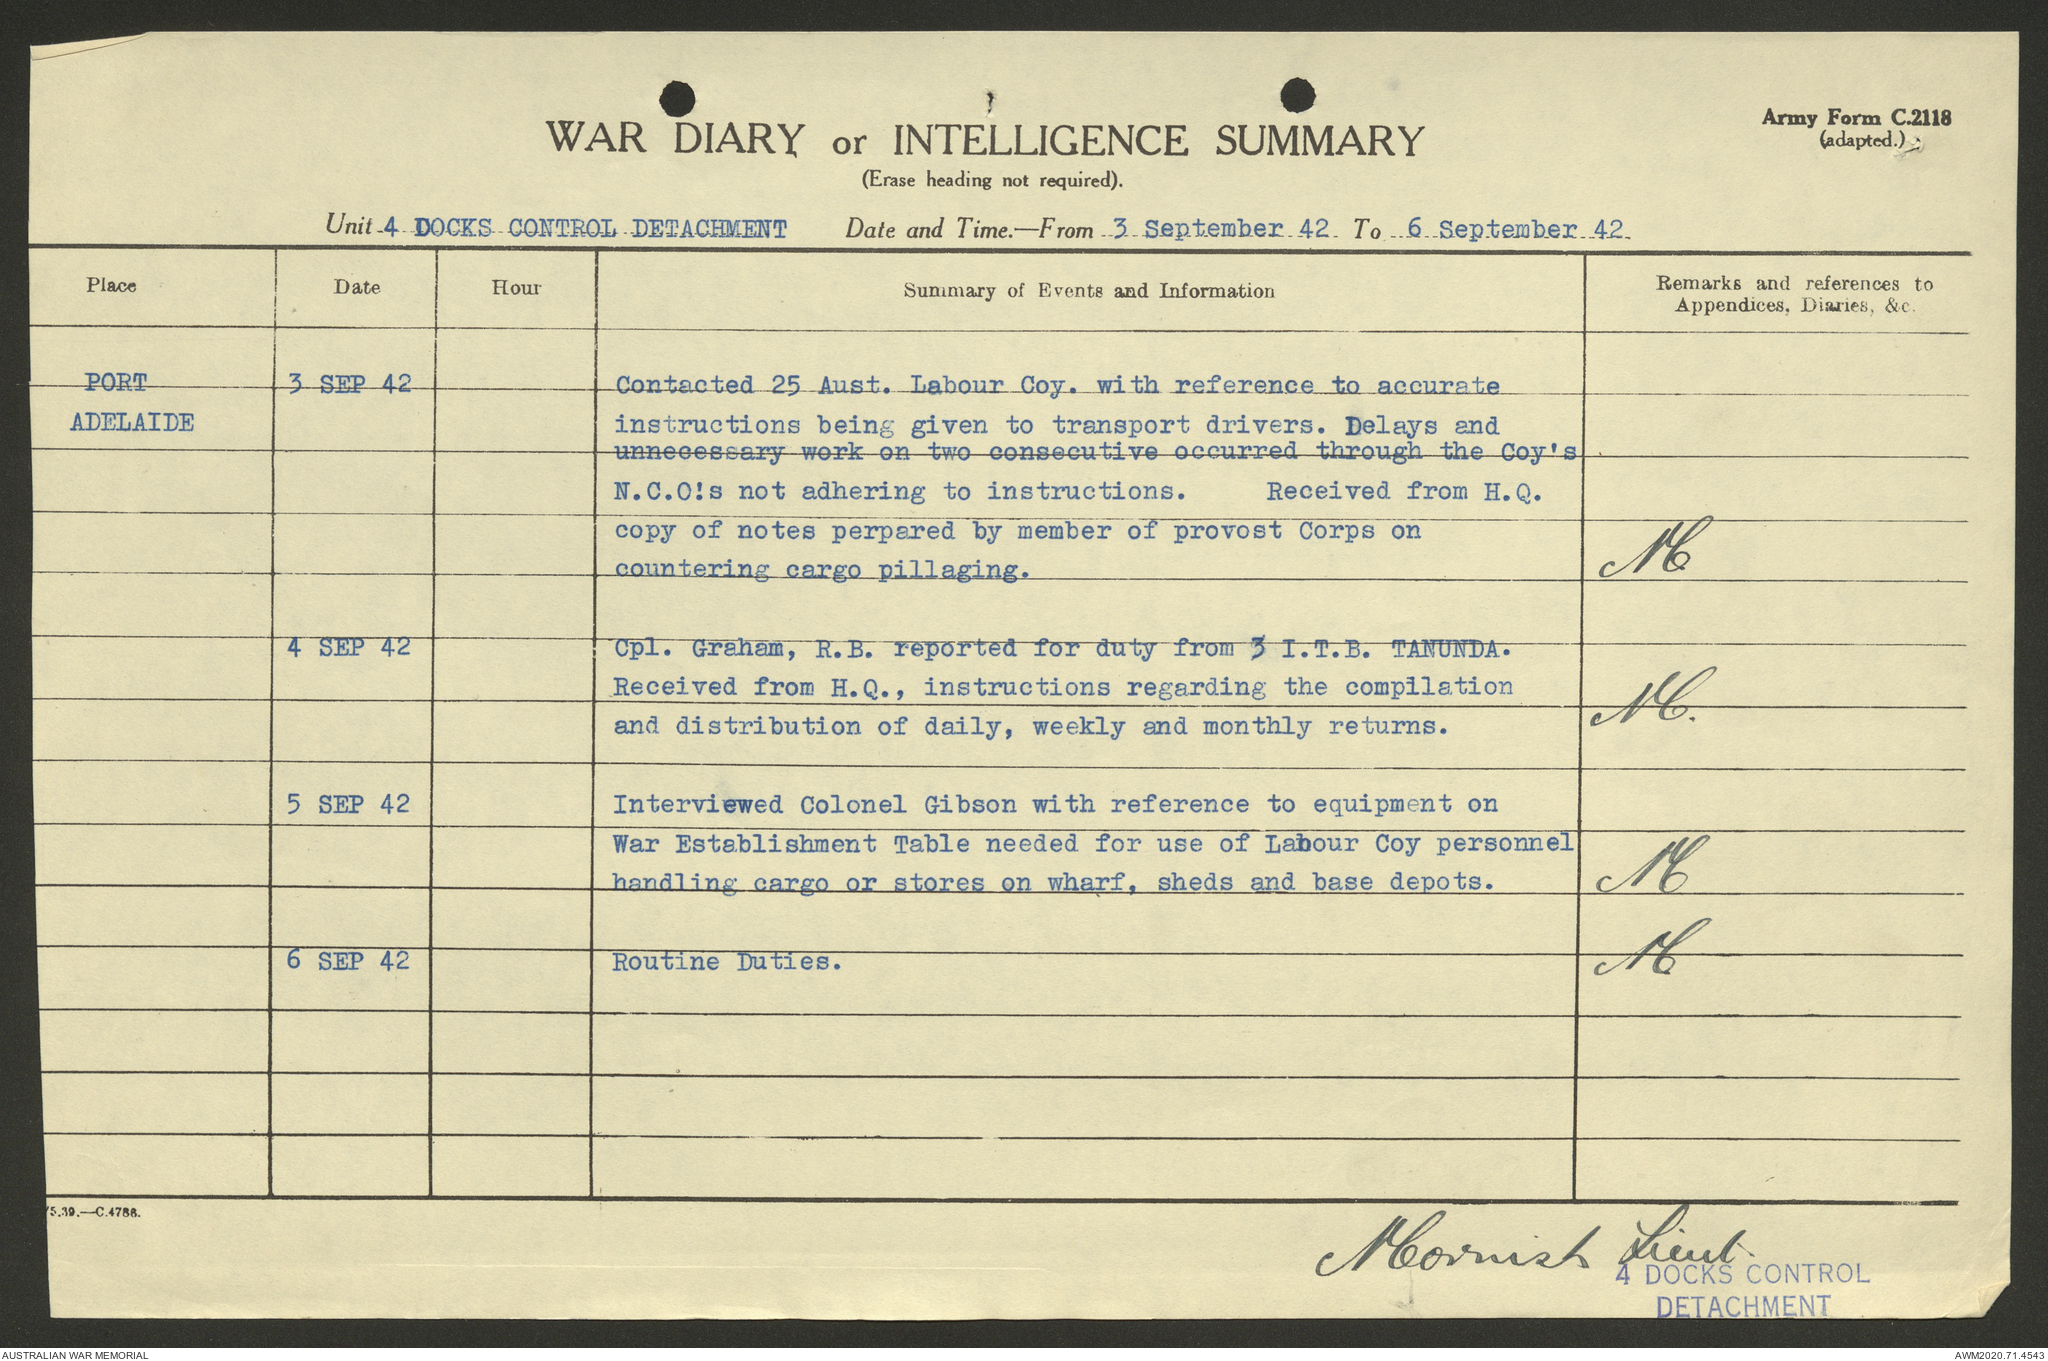 WAR DIARY or INTELLIGENCE SUMMARY
Army Form C.2118
(adapted.)
(Erase heading not required).
Unit 4 DOCKS CONTROL DETACHMENT Date and Time.—From 3 September 42 To 6 September 42.
Place Date Hour Summary of Events and Information Remarks and references to
Appendices, Diaries, &c.
PORT 3 SEP 42 Contacted 25 Aust. Labour Coy. with reference to accurate
ADELAIDE instructions being given to transport drivers. Delays and
unnecessary work on two consecutive occurred through the Coy's
N.C.O!s not adhering to instructions. Received from H.Q.
copy of notes perpared by member of provost Corps on
countering cargo pillaging.
4 SEP 42 Cpl. Graham, R.B. reported for duty from 3 I.T.B. TANUNDA.
Received from H.Q., instructions regarding the compilation
and distribution of daily, weekly and monthly returns.
5 SEP 42 Interviewed Colonel Gibson with reference to equipment on
War Establishment Table needed for use of Labour Coy personnel
handling cargo or stores on wharf, sheds and base depots.
6 SEP 42 Routine Duties.
/5.39.—C.4788.
Lieut.
4 DOCKS CONTROL
DETACHMENT
AUSTRALIAN WAR MEMORIAL
AWM2020.71.4543